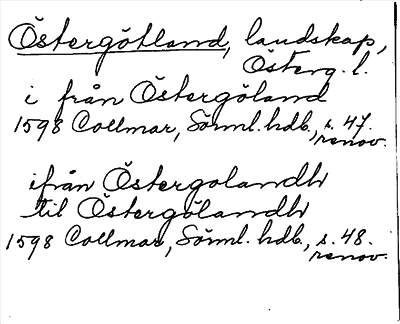 Östergötland, landskap,
Österg. l.
i från Östergöland
1598 Collmar, Sörml. hdb., s. 47.
renov.
ifrån Östergolandh
til Östergölandh
1598 Collmar, Sörml. hdb., s. 48.
renov.